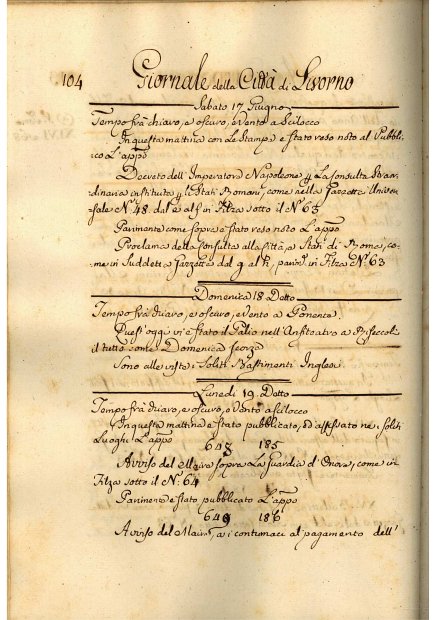 104 Giornale della Città di Livorno
Sabato 17 Giugno
Tempo frà chiaro, e oscuro, e Vento a Scilocco
In questa mattina con Le Stampe è stato reso noto al Pubbli-
co L'app.o
Decreto dell'Imperatore Napoleone La Consulta Straor-
dinaria instituta Stati Romani, come nella Gazzetta Univer-
sale N. 48. dal e al f in Filza sotto il N.o 63
Parimente come sopra è stato reso noto L'app.o
Proclama della Consulta alla Città, e Stati di Roma, co-
me in Suddetta Gazzetta dal g al h, parim.te in Filza N.o 63
Domenica 18 Detto
Tempo frà chiaro, e oscuro, e Vento a Ponente.
Quest'oggi vi è stato il Palio nell'Anfiteatro a
il tutto come Domenica scorsa
Sono alle viste i Soliti Bastimenti Inglesi
Lunedi 19. Detto
Tempo frà chiaro, e oscuro, e Vento a Scilocco
In questa mattina è stato pubblicato, ed affissato ne' soliti
Luoghi L'app.o
648 185
Avviso del Maire sopra La Guardia d'Onore, come in
Filza sotto il N.o 64
Parimente è stato pubblicato L'app.o
649 186
Avviso del Maire, a i contumaci al pagamento dell'